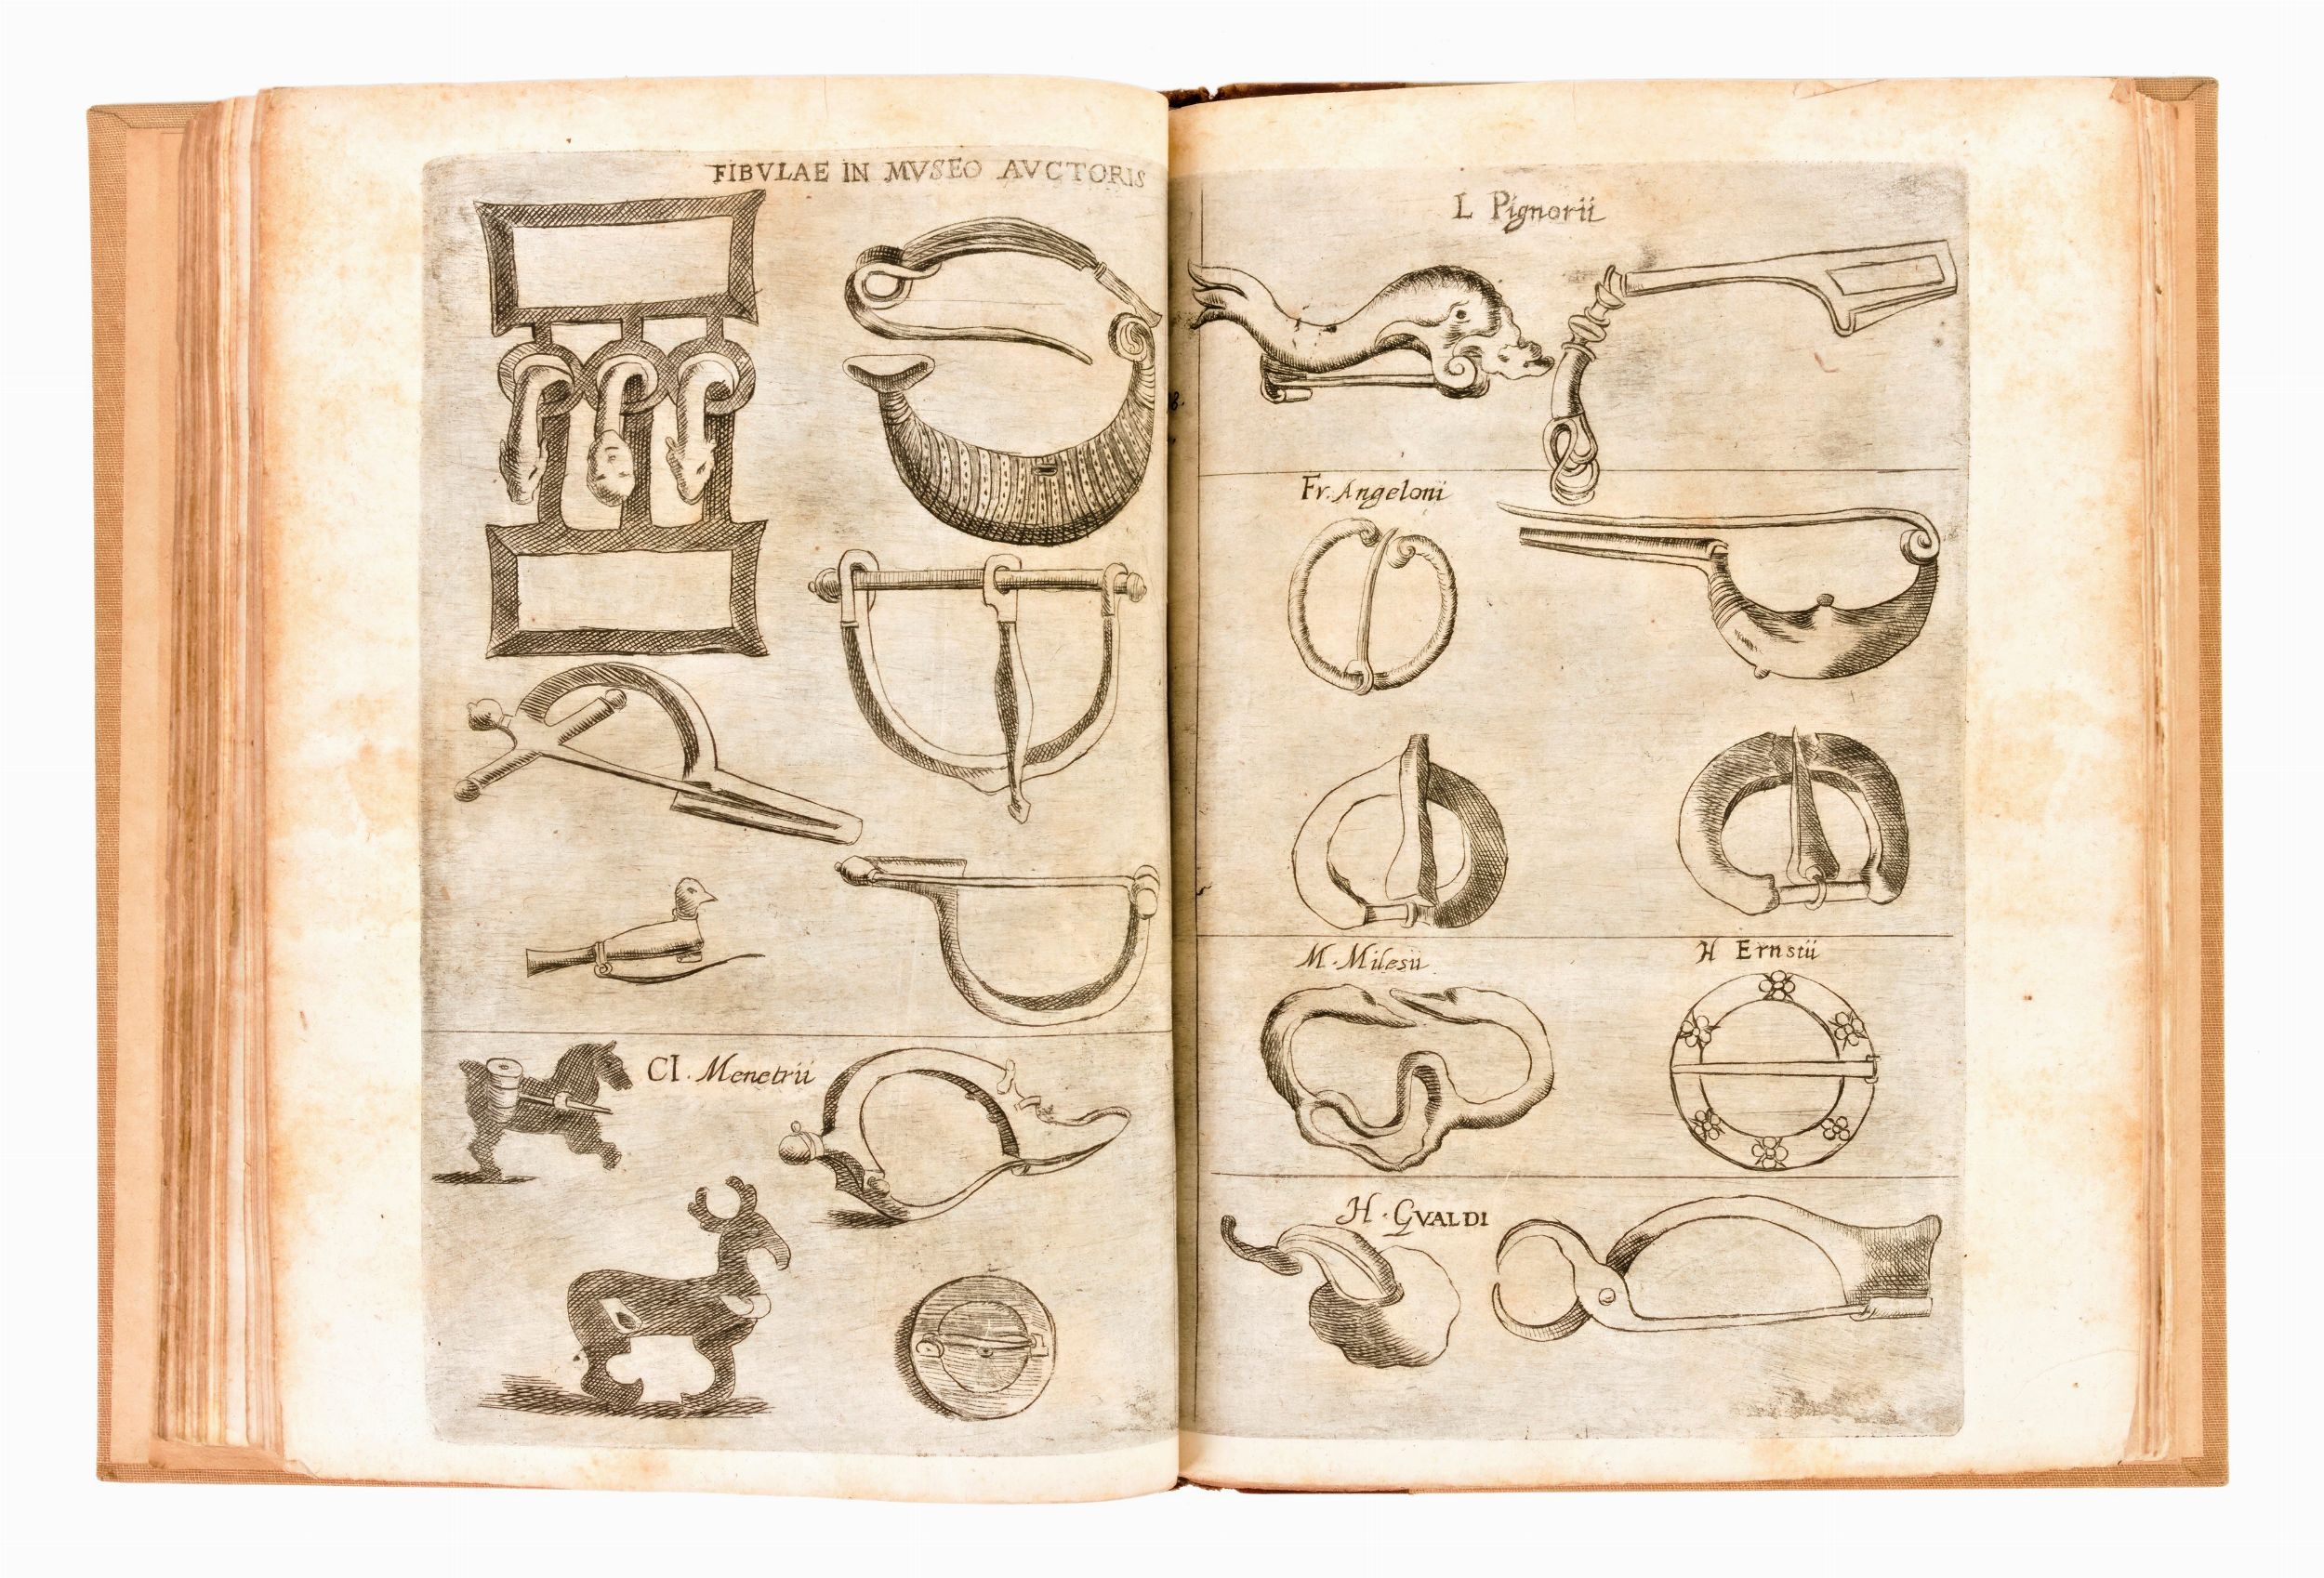 FIBVLAE IN MVSEO AVCTORIS
Cl. Menetrii
L Pignorii
Fr. Angeloni
M. Milesii
H Ernstii
H. GVALDI